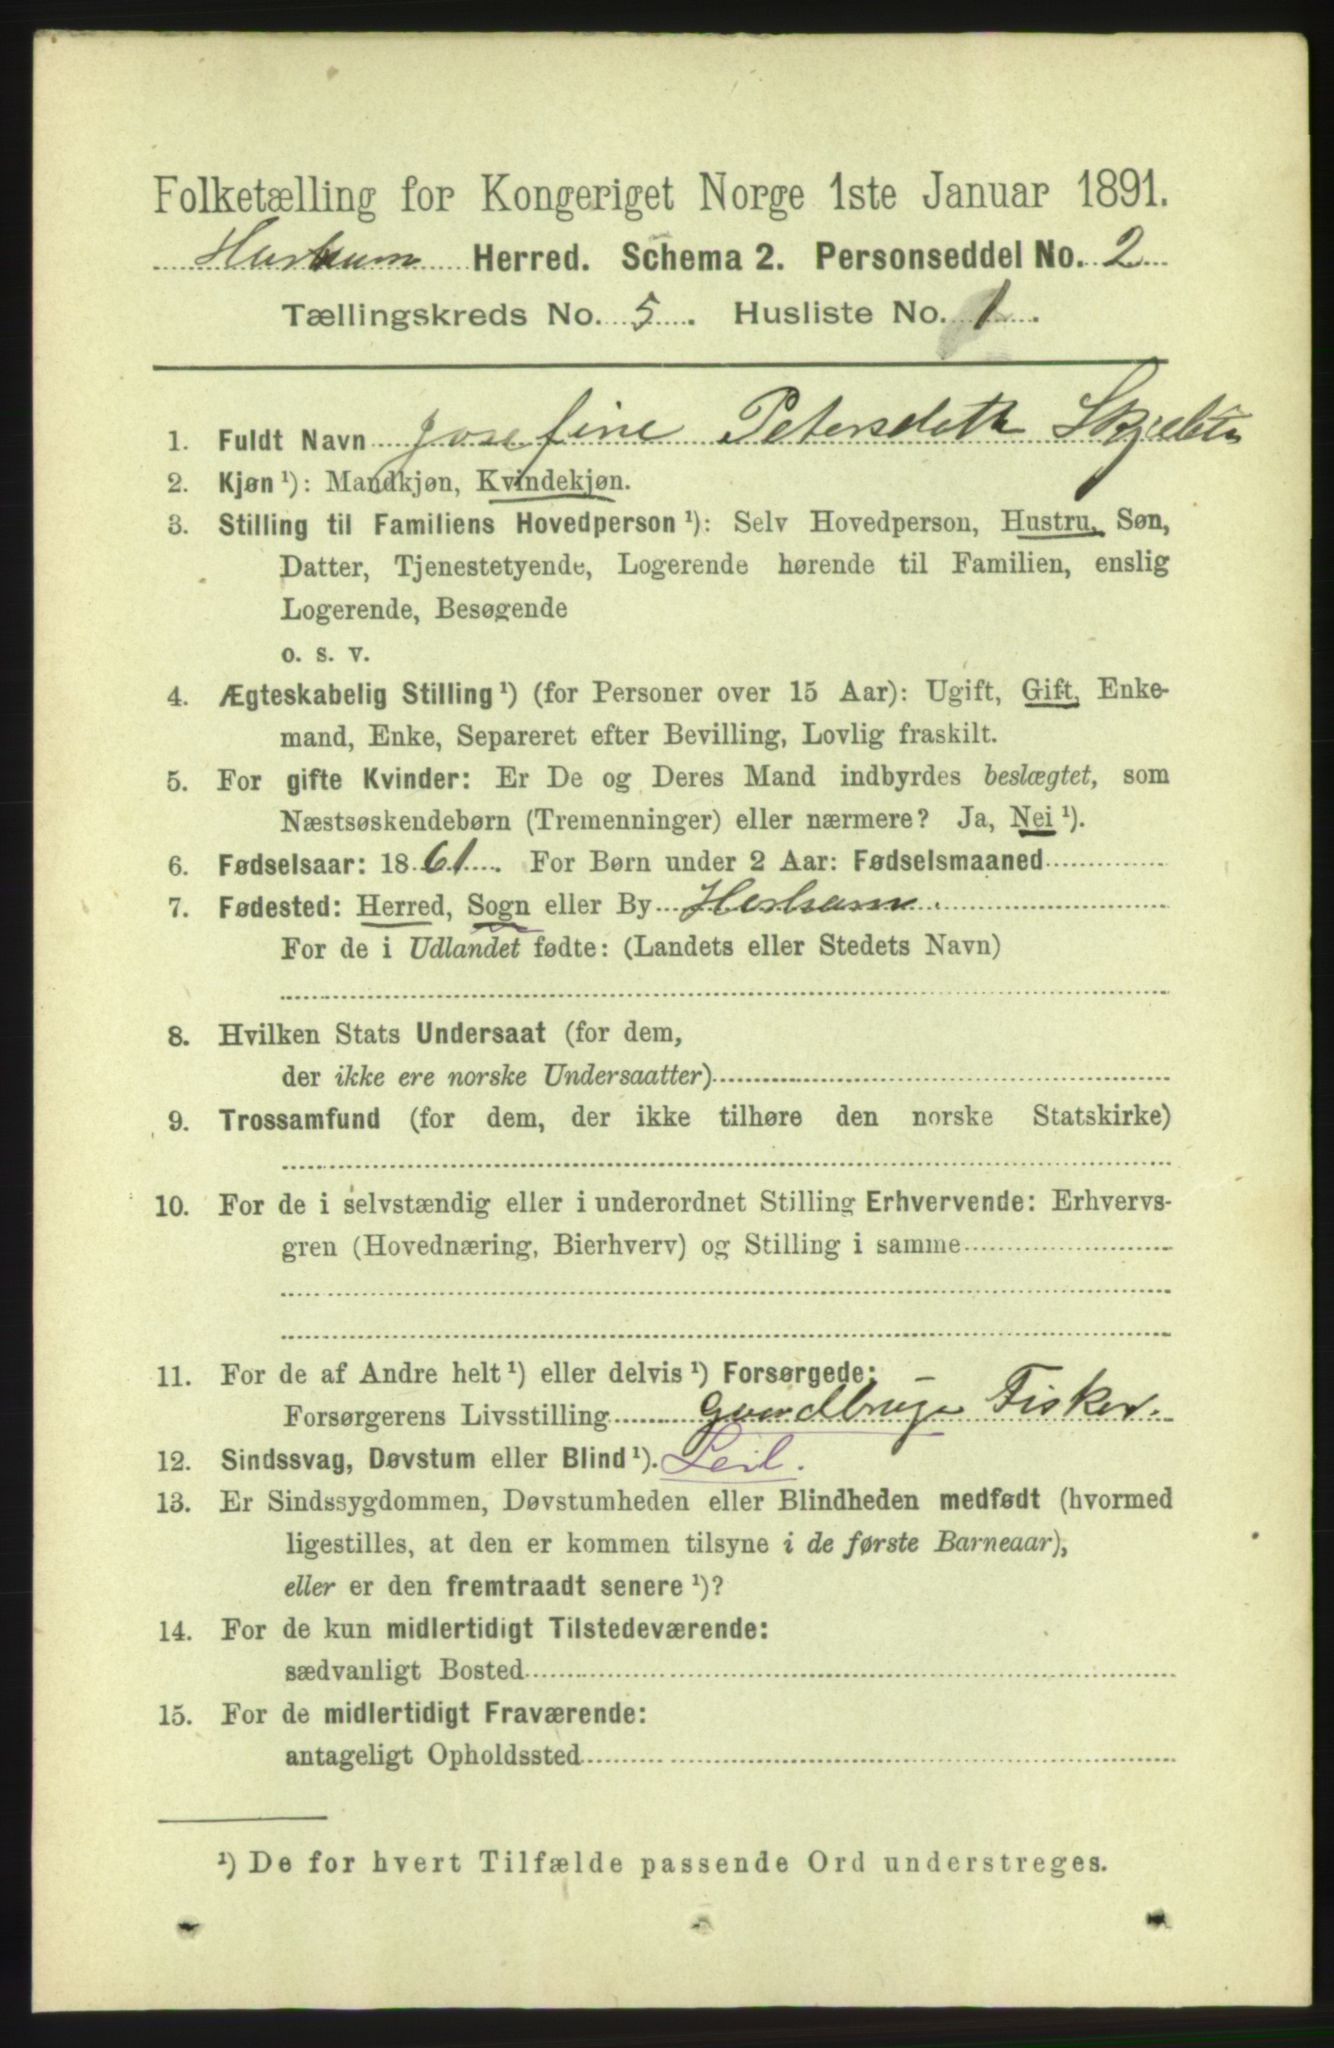 Folketælling for Kongeriget Norge 1ste Januar 1891.
Herred. Schema 2. Personseddel No. 2
Tællingskreds No. 5. Husliste No. 1.
1. Fuldt Navn Josefine Petersdatter
2. Kjøn ¹): Mandkjøn, Kvindekjøn.
3. Stilling til Familiens Hovedperson ¹): Selv Hovedperson, Hustru, Søn,
Datter, Tjenestetyende, Logerende hørende til Familien, enslig
Logerende, Besøgende
o. s. v.
4. Ægteskabelig Stilling ¹) (for Personer over 15 Aar): Ugift, Gift, Enke-
mand, Enke, Separeret efter Bevilling, Lovlig fraskilt.
5. For gifte Kvinder: Er De og Deres Mand indbyrdes beslægtet, som
Næstsøskendebørn (Tremenninger) eller nærmere? Ja, Nei ¹).
6. Fødselsaar: 1861. For Børn under 2 Aar: Fødselsmaaned
7. Fødested: Herred, Sogn eller By
For de i Udlandet fødte: (Landets eller Stedets Navn)
8. Hvilken Stats Undersaat (for dem,
der ikke ere norske Undersaatter)
9. Trossamfund (for dem, der ikke tilhøre den norske Statskirke)
10. For de i selvstændig eller i underordnet Stilling Erhvervende: Erhvervs-
gren (Hovednæring, Bierhverv) og Stilling i samme
11. For de af Andre helt ¹) eller delvis ¹) Forsørgede:
Forsørgerens Livsstilling Fisker.
12. Sindssvag, Døvstum eller Blind ¹). Leil.
13. Er Sindssygdommen, Døvstumheden eller Blindheden medfødt (hvormed
ligestilles, at den er kommen tilsyne i de første Barneaar),
eller er den fremtraadt senere ¹)?
14. For de kun midlertidigt Tilstedeværende:
sædvanligt Bosted
15. For de midlertidigt Fraværende:
antageligt Opholdssted
¹) De for hvert Tilfælde passende Ord understreges.